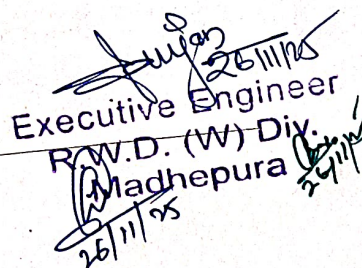 26/11/25
Executive Engineer
R.W.D. (W) Div.
Madhepura
26/11/25
26/11/25